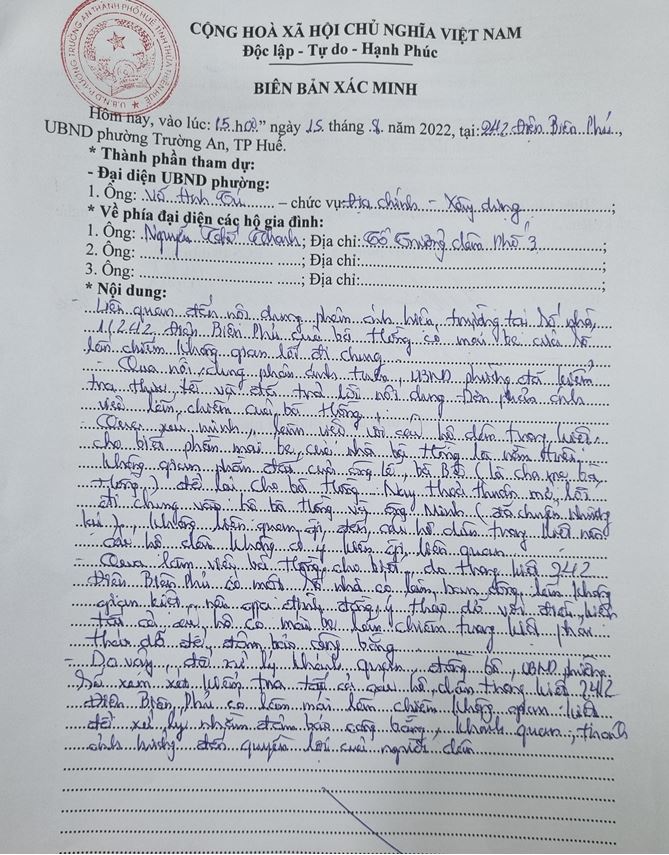 U.B.N.D PHƯỜNG TRƯỜNG AN THÀNH PHỐ HUẾ TỈNH THỪA THIÊN HUẾ
CỘNG HOÀ XÃ HỘI CHỦ NGHĨA VIỆT NAM
Độc lập - Tự do - Hạnh Phúc
BIÊN BẢN XÁC MINH
Hôm nay, vào lúc: 15.h00" ngày 15 tháng 8 năm 2022, tại: 242 Điện Biên Phủ,
UBND phường Trường An, TP Huế.
* Thành phần tham dự:
- Đại diện UBND phường:
1. Ông: Võ Anh – chức vụ: Địa chính - Xây dựng ;
* Về phía đại diện các hộ gia đình:
1. Ông: Nguyễn Chí Thanh ; Địa chỉ: Tổ trưởng dân phố 3 ;
2. Ông: ; Địa chỉ: ;
3. Ông: ; Địa chỉ: ;
* Nội dung:
Liên quan đến nội dung phản ánh hiện trường tại số nhà
11/242 Điện Biên Phủ của bà Hồng có mái che cửa sổ
lấn chiếm không gian lối đi chung
- Qua nội dung phản ánh trên, UBND phường đã kiểm
tra thực tế và đã trả lời nội dung đơn phản ánh
việc lấn chiếm của bà Hồng.
- Qua xác minh, làm việc với các hộ dân trong kiệt
cho biết phần mái che của nhà bà Hồng là nằm trên
không gian phần đất của ông bà (là cha mẹ bà
Hồng) để lại cho bà Hồng. Nay thỏa thuận mở lối
đi chung vào hộ bà Hồng và ông Minh (đã chuyển nhượng
lại), không liên quan gì đến các hộ dân trong kiệt nào
các hộ dân không có ý kiến gì liên quan
- Qua làm việc bà Hồng cho biết, do trong kiệt 242
Điện Biên Phủ có một số nhà có làm ban công lấn không
gian kiệt, nếu gia đình đồng ý tháo dỡ với điều kiện
tất cả các hộ có mái che lấn chiếm trong kiệt phải
tháo dỡ để đảm bảo công bằng
- Do vậy, để xử lý khách quan, đồng bộ, UBND phường
sẽ xem xét kiểm tra tất cả các hộ dân trong kiệt 242
Điện Biên Phủ có làm mái lấn chiếm không gian kiệt
để xử lý nhằm đảm bảo công bằng, khách quan, tránh
ảnh hưởng đến quyền lợi của người dân